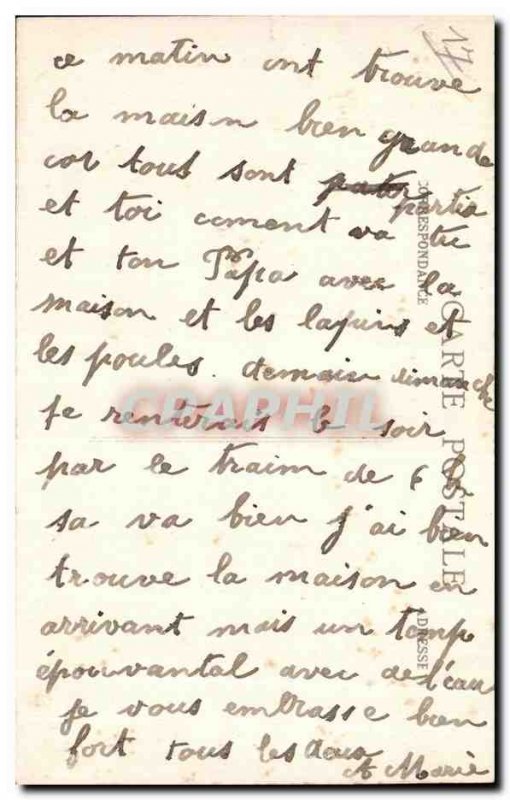 17
ce matin ont trouve
la maison bien grande
car tous sont partia
et toi coment va tu
et ton Papa avec la
maison et les lapins et
les poules. demain dimanche
je renterais le soir
par le traim de 6 h
sa va bien j'ai bien
trouve la maison en
arrivant mais un temp
épouvantal avec de l'eau
je vous embrasse bien
fort tous les deux
A Marie
CARTE POSTALE
CORRESPONDANCE
ADRESSE
CRAPHIL